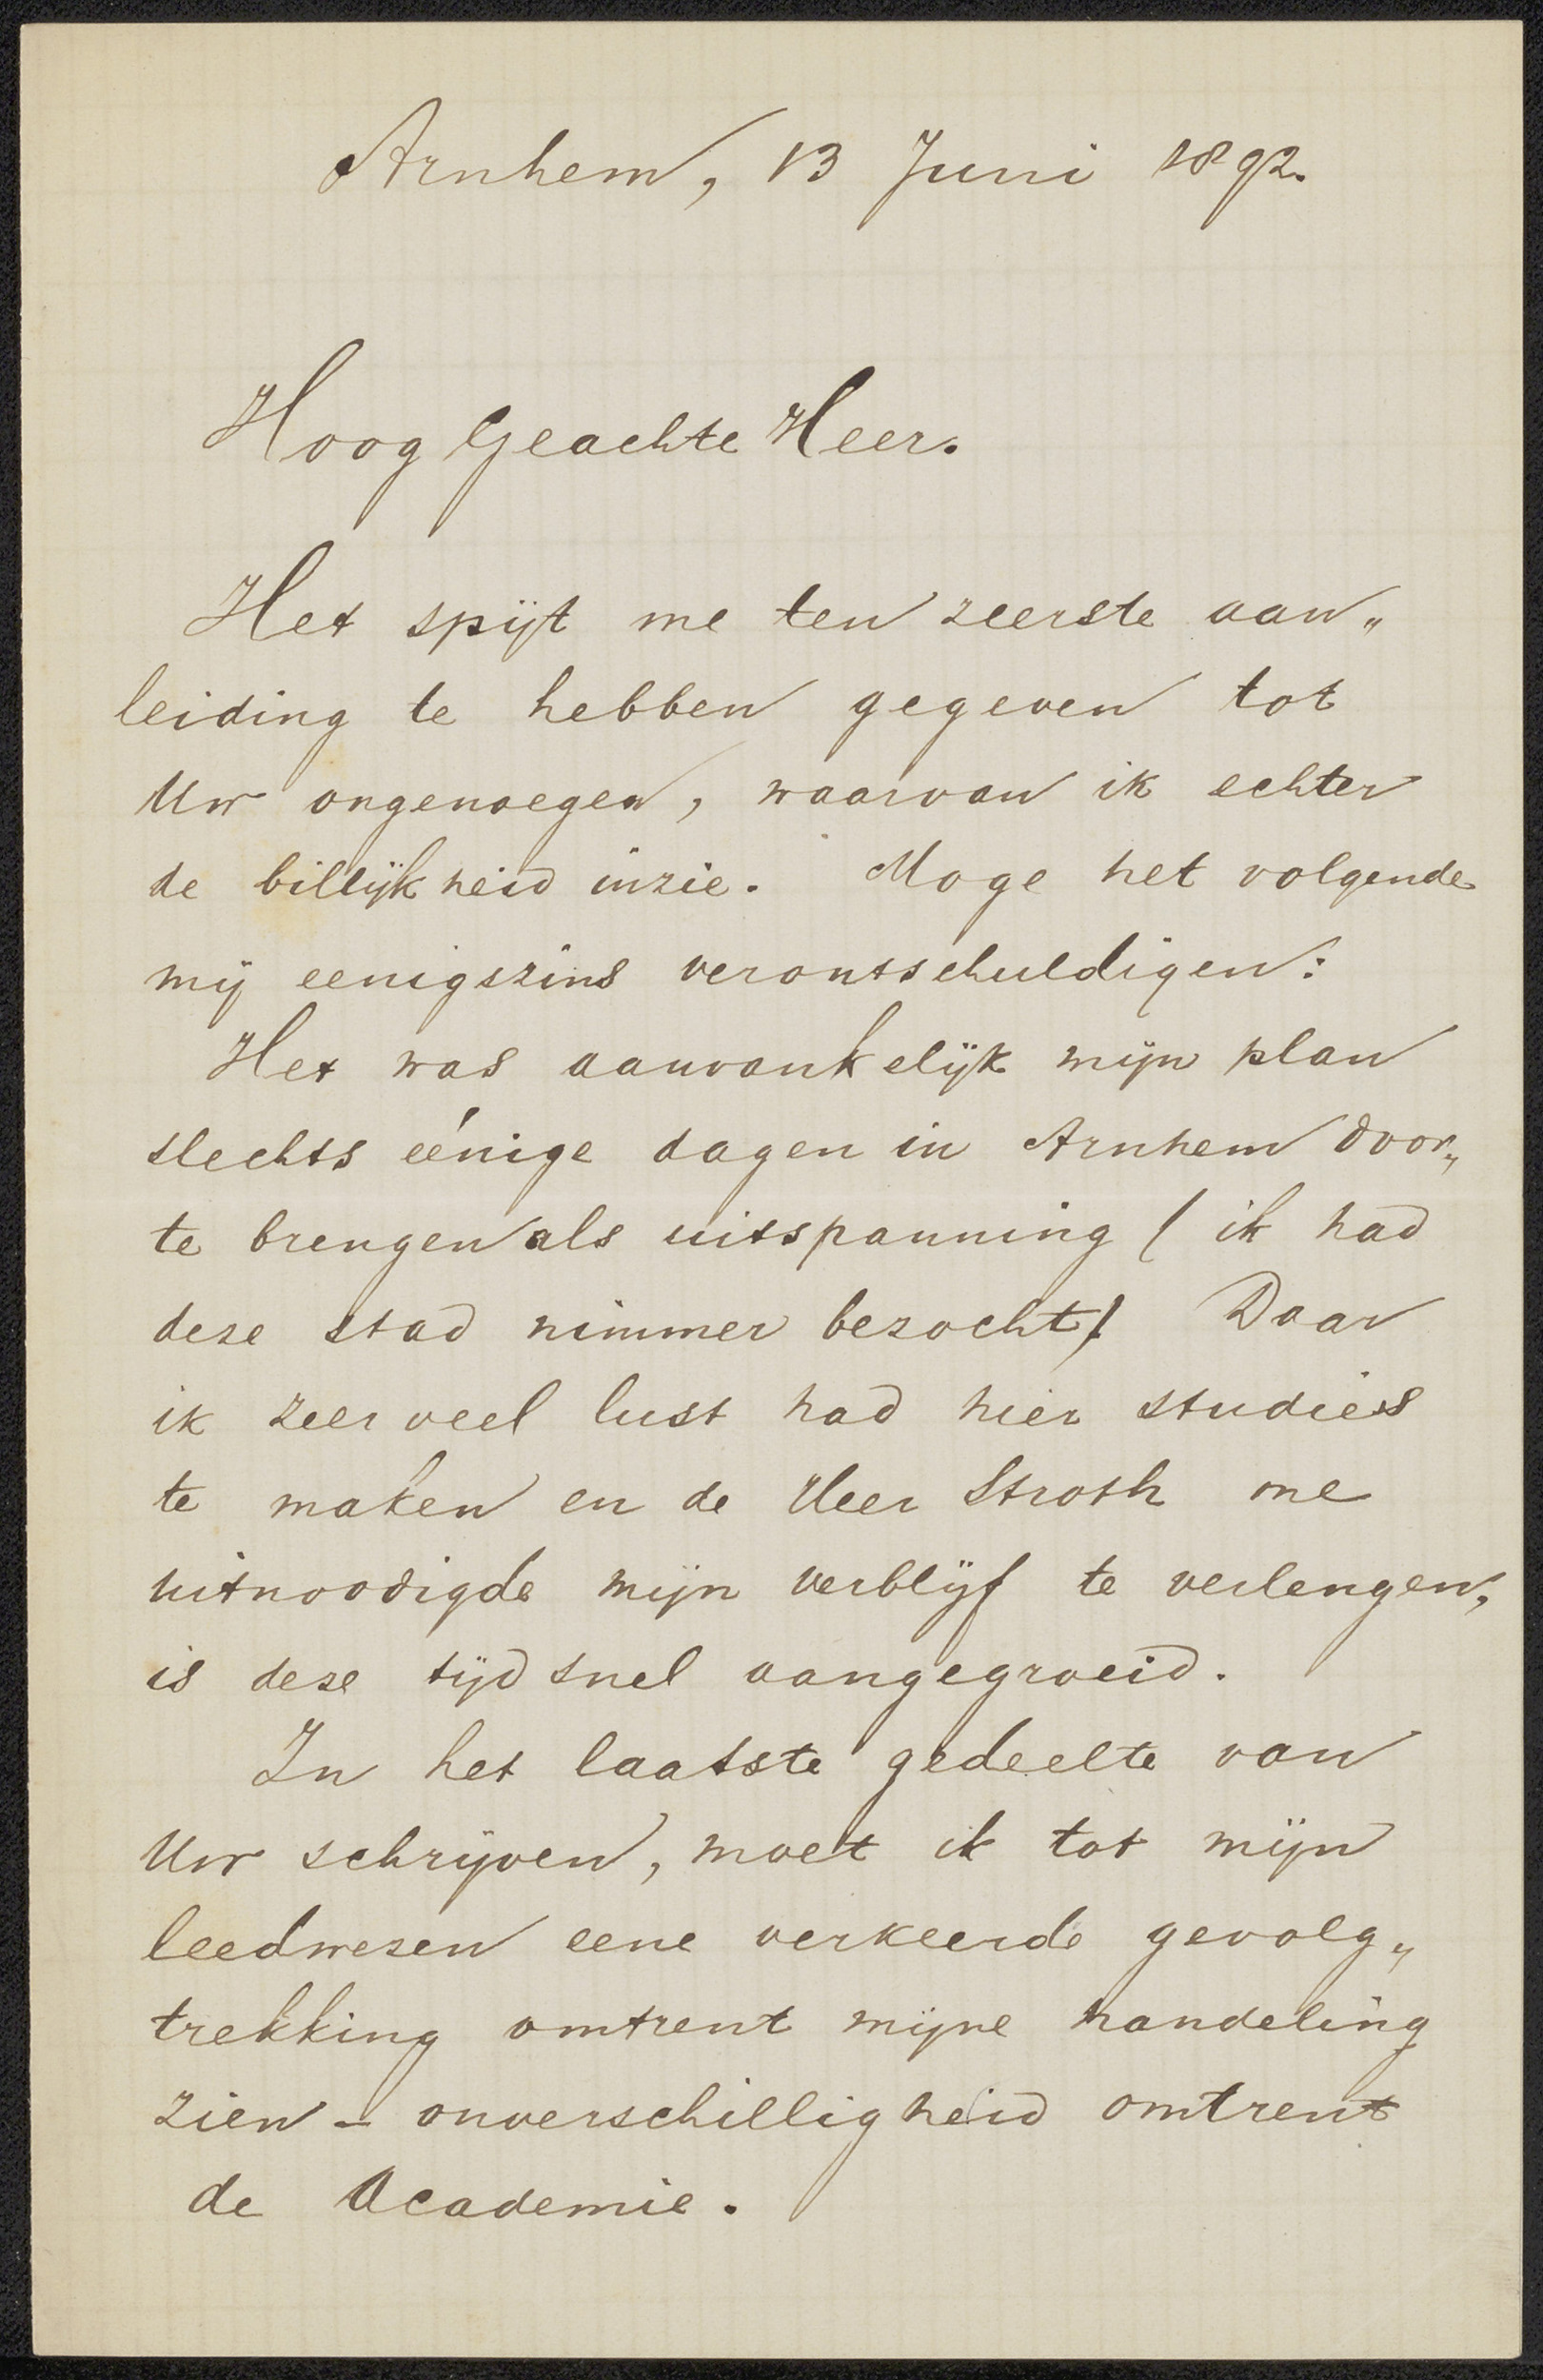 Arnhem, 13 Juni 1892.
Hoog Geachte Heer.
Het spijt me ten zeerste aan„
leiding te hebben gegeven tot
Uw ongenoegen, waarvan ik echter
de billijkheid inzie. Moge het volgende
mij eenigszins verontschuldigen:
Het was aanvankelijk mijn plan
slechts eénige dagen in Arnhem door„
te brengen als uitspanning (ik had
deze stad nimmer bezocht) Daar
ik zeer veel lust had hier studies
te maken en de Heer Stroth me
uitnoodigde mijn verblijf te verlengen,
is deze tijd snel aangegroeid.
In het laatste gedeelte van
Uw schrijven, moet ik tot mijn
leedwezen eene verkeerde gevolg„
trekking omtrent mijne handeling
zien – onverschilligheid omtrent
de Academie.